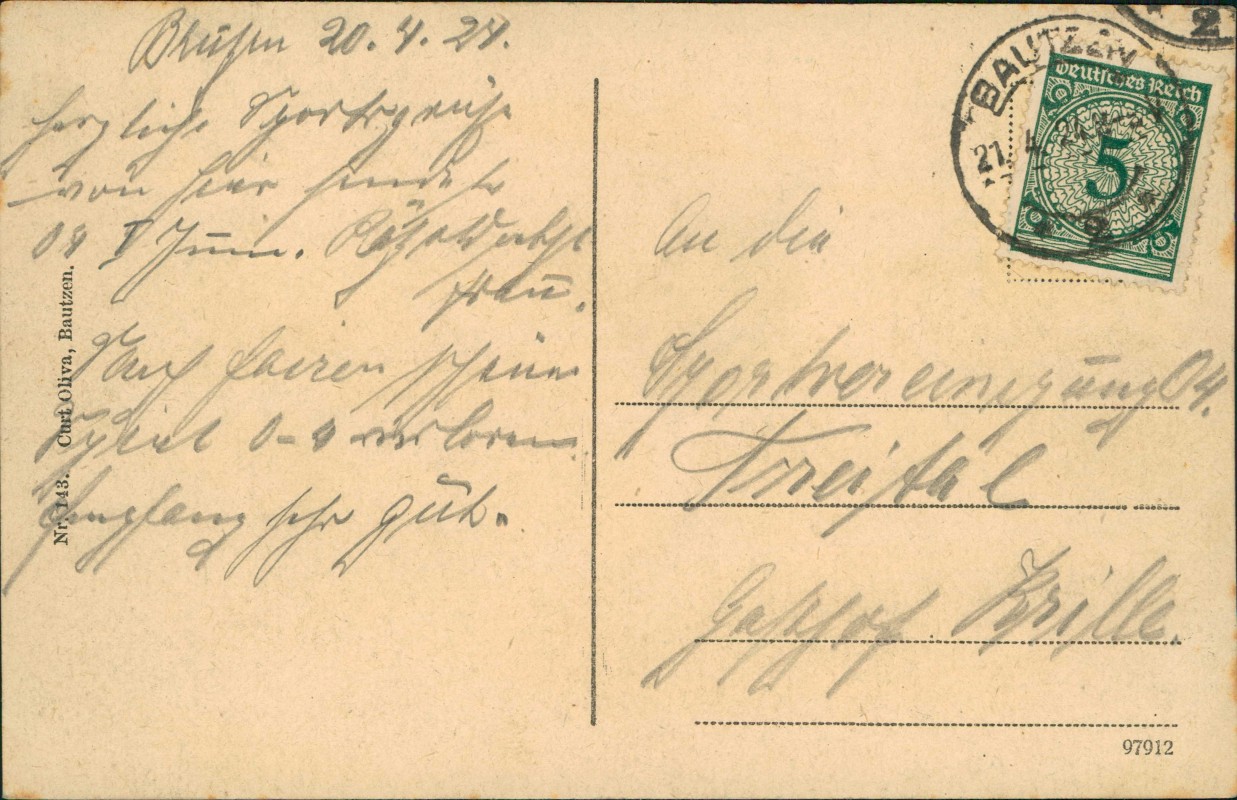 20. 4. 24.
Herzliche Sportsgrüße
von hier sendet
04 I Juni.
frau.
Nach fairen schönen
Spiel 0-4 verloren.
Empfang sehr gut.
Nr. 143. Curt Oliva, Bautzen.
BAUTZEN
21. 4. 24
2
Deutsches Reich
5
An die
Sportvereinigung 04.
Freital
Gasthof Krille.
97912